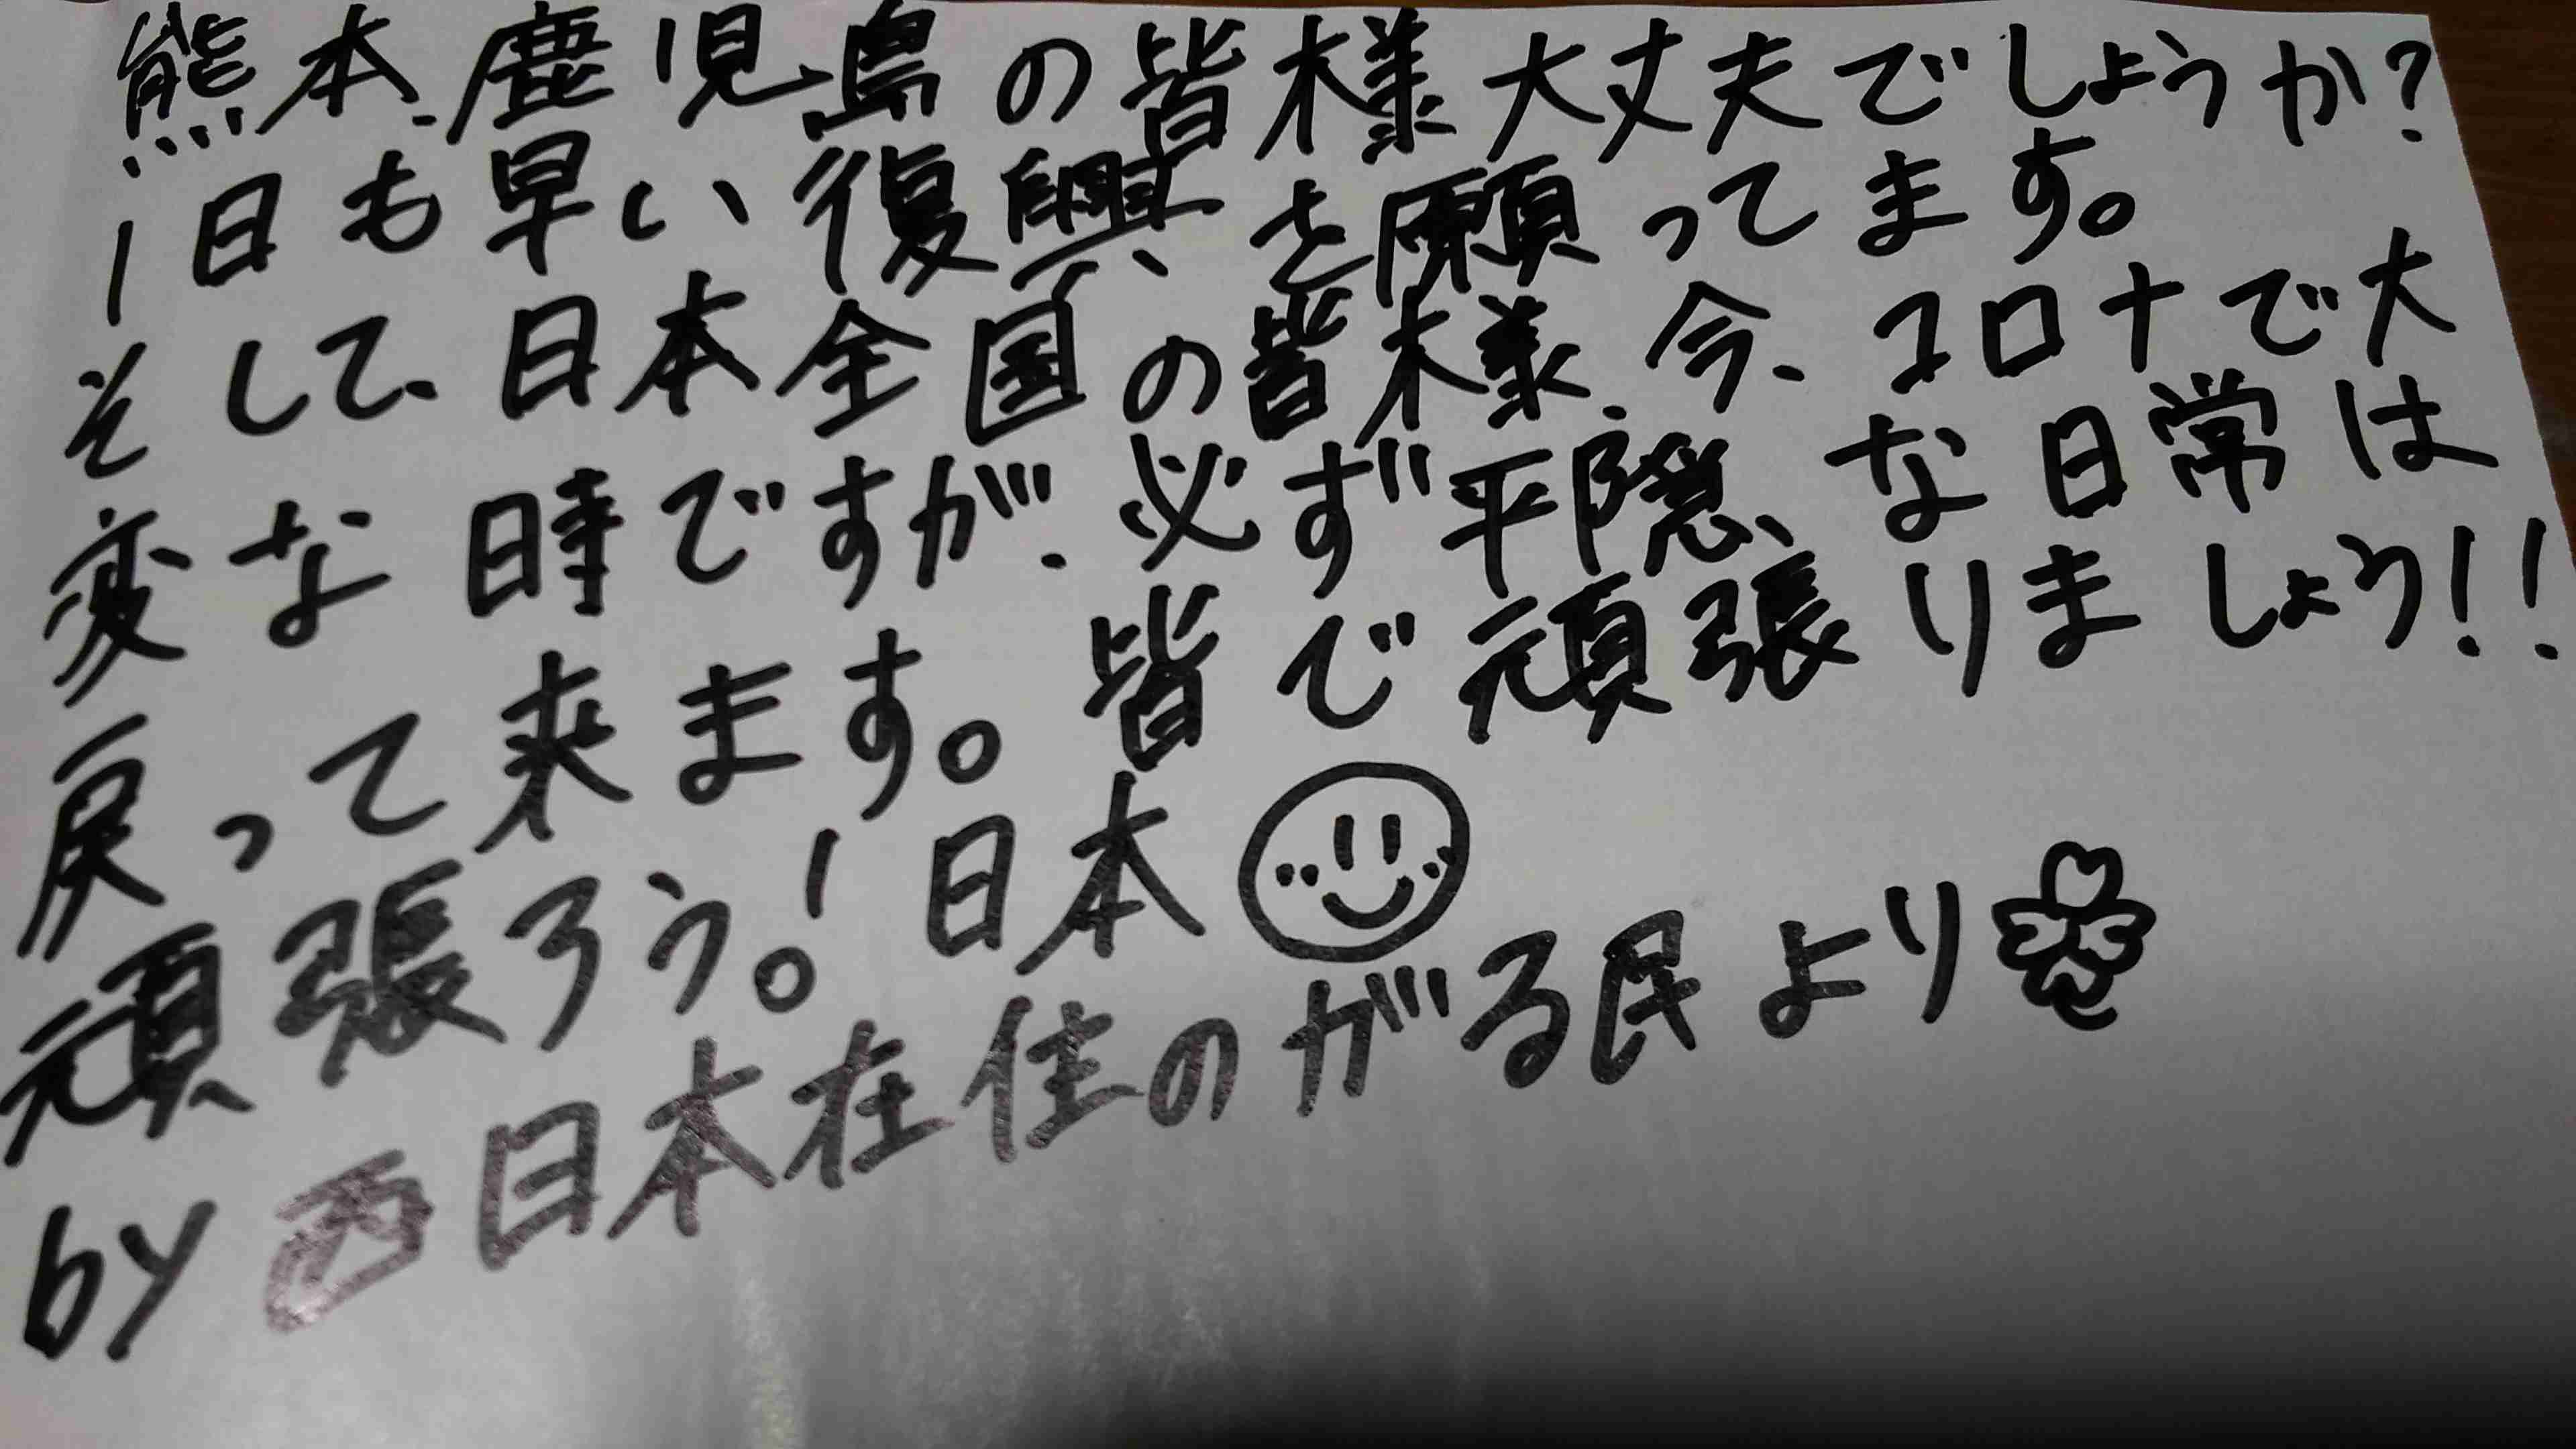 熊本、鹿児島の皆様大丈夫でしょうか?
1日も早い復興を願ってます。
そして、日本全国の皆様、今、コロナで大
変な時ですが、必ず平隠な日常は
戻って来ます。皆で頑張りましょう!!
頑張ろう!日本
by西日本在住のがる民より